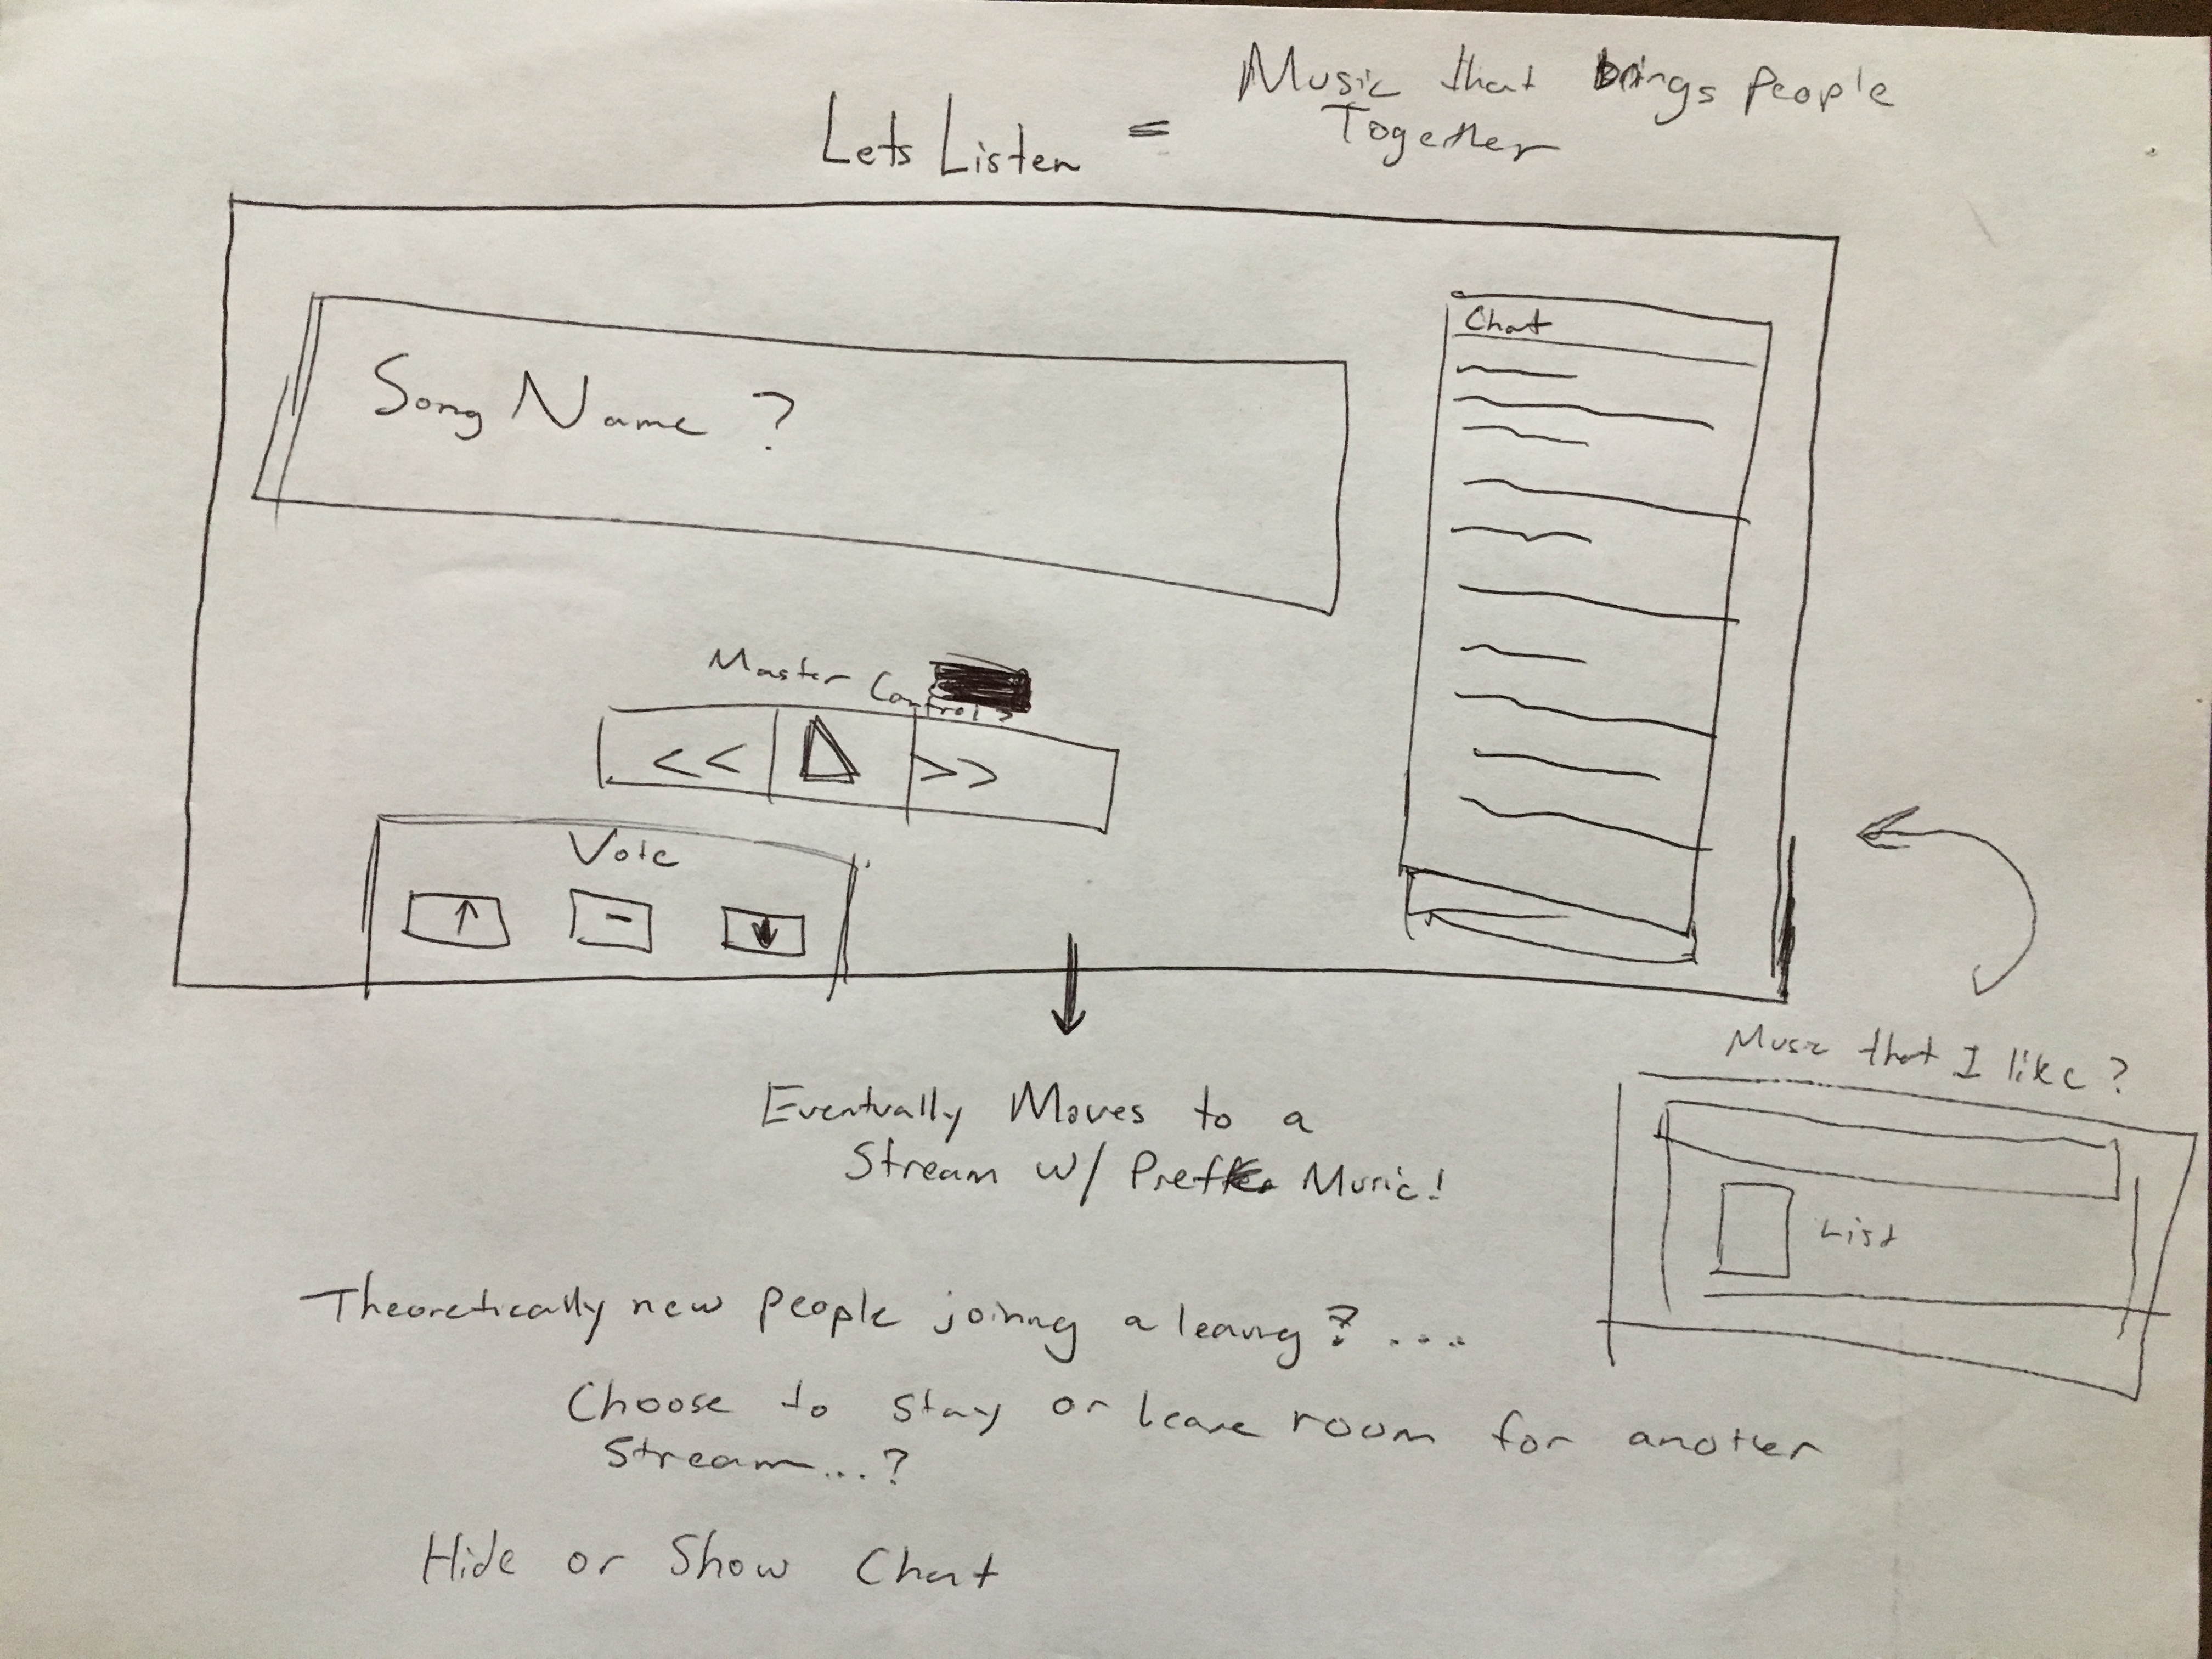 Music that brings people
Together
Lets Listen =
Chat
Song Name ?
Master Controls
<< >>
Vote
↑ - ↓
Music that I like?
List
Eventually Moves to a
Stream w/ Music!
Theoretically new people joining a leaving? ....
Choose to stay or leave room for another
Stream...?
Hide or Show Chat